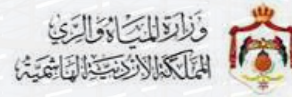 وزارة المياه والري
المملكة الأردنية الهاشمية